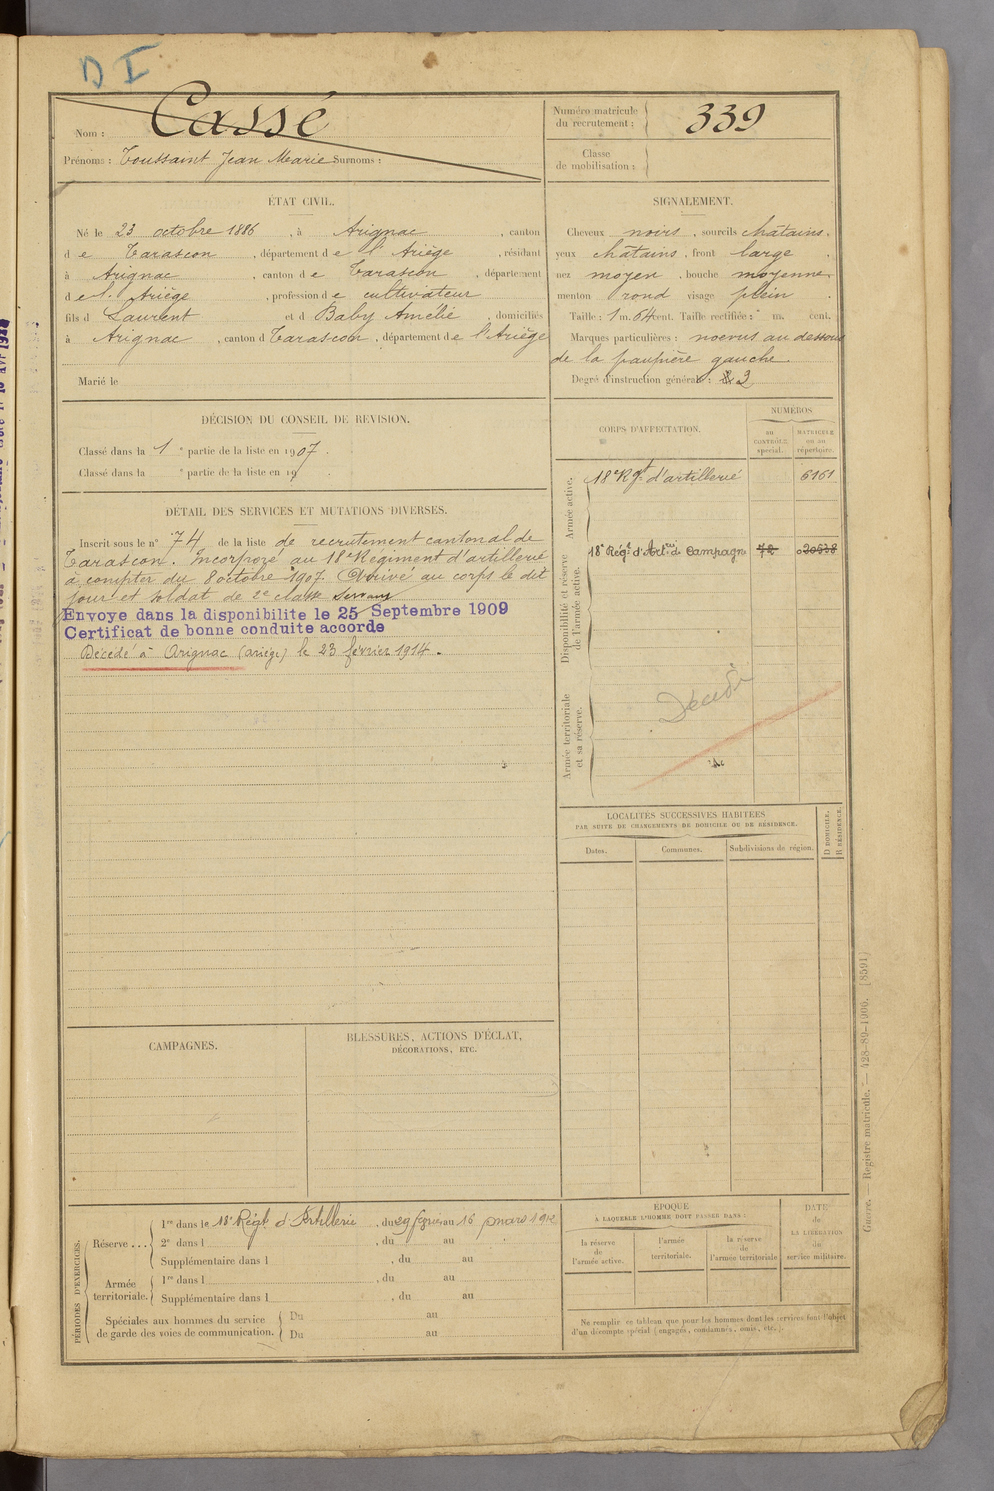 D I
Nom : Cassé
Prénoms : Toussaint Jean Marie Surnoms :
Numéro matricule
du recrutement : 339
Classe
de mobilisation :
ÉTAT CIVIL.
Né le 23 octobre 1886, à Arignac, canton
de Tarascon, département de l'Ariège, résidant
à Arignac, canton de Tarascon, département
de l'Ariège, profession de cultivateur
fils d Laurent et d Baby Amélie, domiciliés
à Arignac, canton d Tarascon, département de l'Ariège
Marié le
SIGNALEMENT.
Cheveux noirs, sourcils châtains,
yeux châtains, front large,
nez moyen, bouche moyenne,
menton rond visage plein.
Taille : 1 m. 64 cent. Taille rectifiée : m. cent.
Marques particulières : noevus au dessous
de la paupière gauche.
Degré d'instruction générale : 2
DÉCISION DU CONSEIL DE REVISION.
Classé dans la 1 e partie de la liste en 1907.
Classé dans la e partie de la liste en 19 .
DÉTAIL DES SERVICES ET MUTATIONS DIVERSES.
Inscrit sous le n° 74 de la liste de recrutement cantonal de
Tarascon. Incorporé au 18e Régiment d'artillerie
à compter du 8 octobre 1907. Arrivé au corps le dit
jour et soldat de 2e classe Servant
Envoye dans la disponibilite le 25 Septembre 1909
Certificat de bonne conduite accorde
Décédé à Arignac (Ariège) le 23 février 1914.
CORPS D'AFFECTATION.
NUMÉROS
au
CONTRÔLE
spécial.
MATRICULE
ou au
répertoire.
Armée active.
18e Rgt d'artillerie 6161
Disponibilité et réserve
de l'armée active.
18e Régt d'Artrie de Campagne 72 020638
Armée territoriale
et sa réserve.
Décédé
LOCALITÉS SUCCESSIVES HABITÉES
PAR SUITE DE CHANGEMENTS DE DOMICILE OU DE RÉSIDENCE.
Dates.
Communes.
Subdivisions de région.
D DOMICILE.
R RÉSIDENCE.
CAMPAGNES.
BLESSURES, ACTIONS D'ÉCLAT,
DÉCORATIONS, ETC.
PÉRIODES D'EXERCICES.
Réserve ...
1re dans le 18e Régt d'Artillerie, du 29 février au 16 mars 1912
2e dans l , du au
Supplémentaire dans l , du au
Armée
territoriale.
1re dans l , du au
Supplémentaire dans l , du au
Spéciales aux hommes du service
de garde des voies de communication.
Du au
Du au
ÉPOQUE
À LAQUELLE L'HOMME DOIT PASSER DANS :
la réserve
de
l'armée active.
l'armée
territoriale.
la réserve
de
l'armée territoriale
DATE
de
LA LIBÉRATION
du
service militaire.
Ne remplir ce tableau que pour les hommes dont les services font l'objet
d'un décompte spécial (engagés, condamnés, omis, etc.).
Guerre. — Registre matricule. — 428-89-1906. [8591]